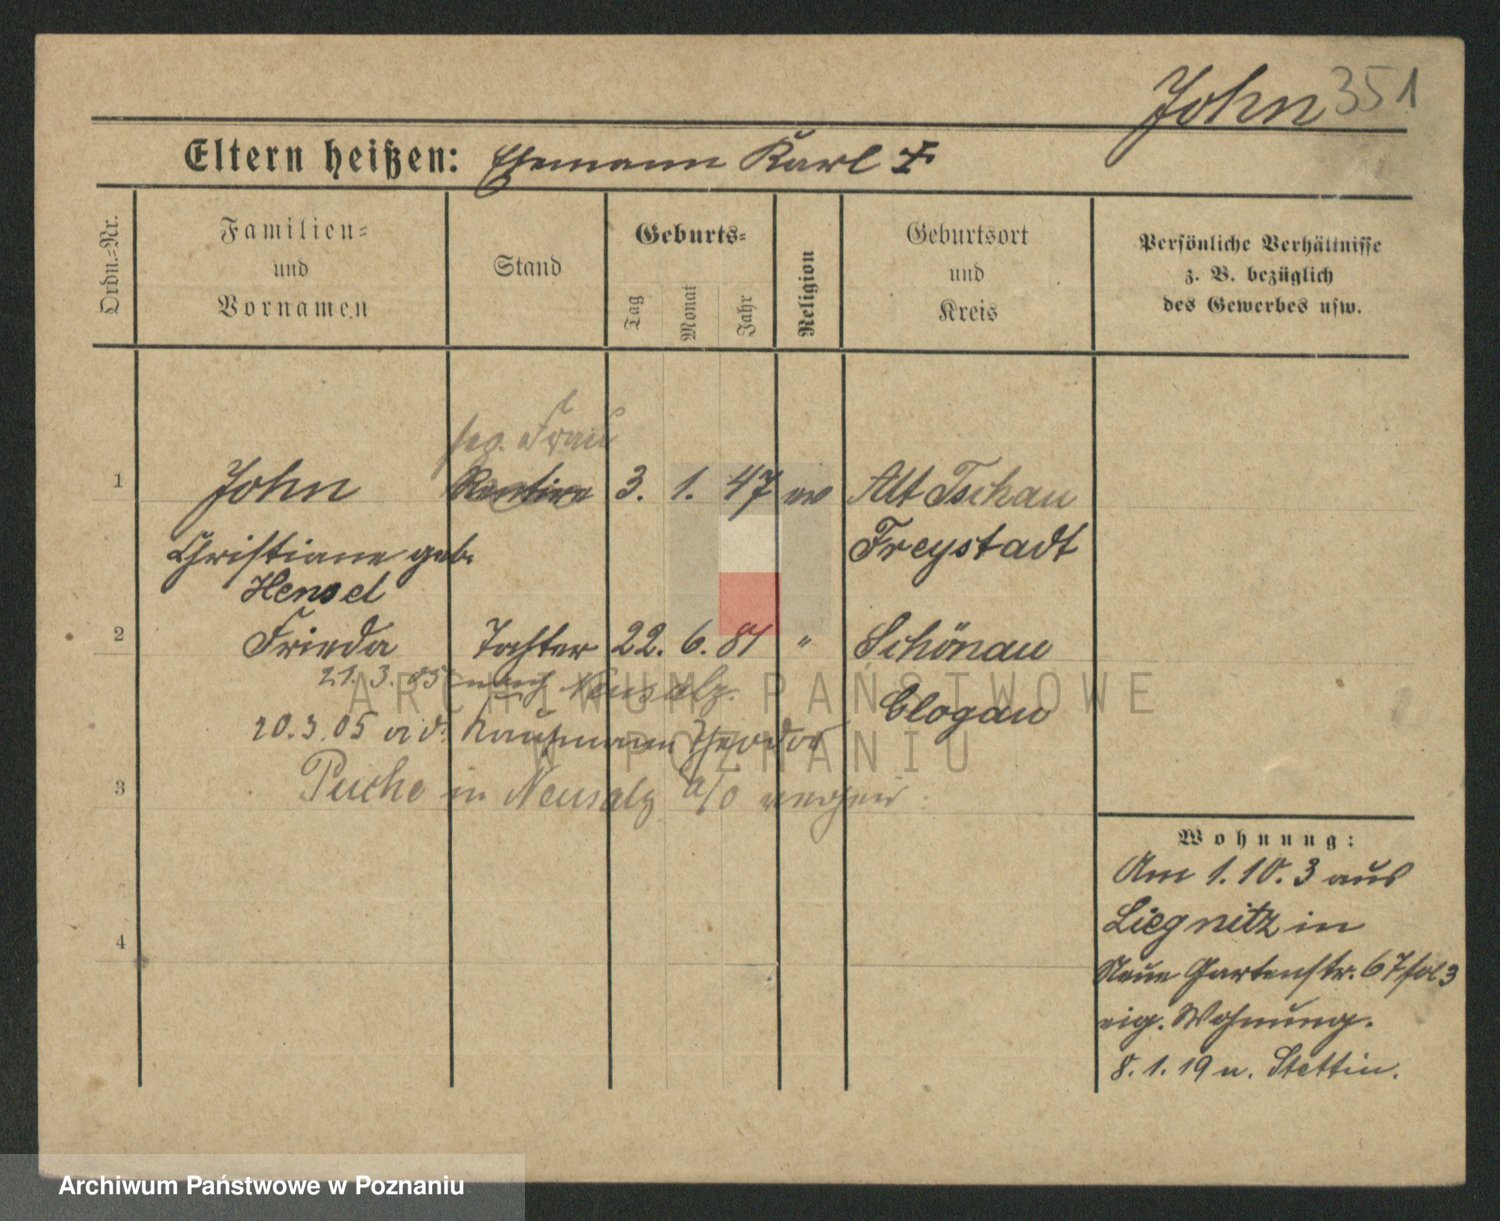 John 351
Eltern heißen: Ehemann Karl †
Ordn.-Nr.
Familien-
und
Vornamen
Stand
Geburts-
Tag
Monat
Jahr
Religion
Geburtsort
und
Kreis
Persönliche Verhältnisse
z. B. bezüglich
des Gewerbes usw.
Frau
1 John Rentiere 3. 1. 47 ev Alt Tschau
Christiane geb. Freystadt
Hensel
2 Frieda Tochter 22. 6. 81 " Schönau
21.3.05 nach Neusalz.
Glogau
20.3.05 a. d. Kaufmann Theodor
3 Puche in Neusalz a/O
Wohnung:
Am 1.10.3 aus
Liegnitz in
4
Neue Gartenstr. 67
eig. Wohnung.
8.1.19 n. Stettin.
ARCHIWUM PAŃSTWOWE
W POZNANIU
Archiwum Państwowe w Poznaniu